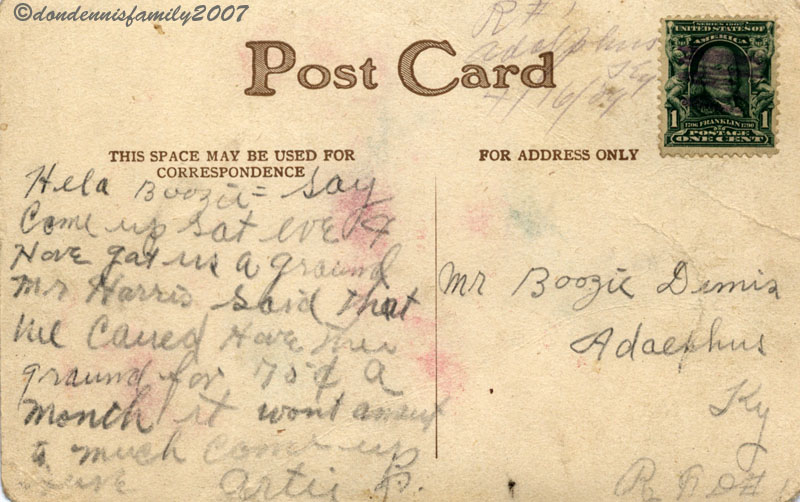 ©dondennisfamily2007
R # 1
Adolphus
Ky
4/16/09
Post Card
SERIES 1902
UNITED STATES OF AMERICA
1 1
1706 FRANKLIN 1790
POSTAGE
ONE CENT
THIS SPACE MAY BE USED FOR
CORRESPONDENCE
FOR ADDRESS ONLY
Helo Boozie = Say
Come up Sat eve I
Have got us a ground
Mr Harris Said that
we Caued Have the
ground for 75¢ A
Month it wont amout
to much Come up
Artie P.
Mr Boozie Dinnis
Adaephus
Ky
R F D #